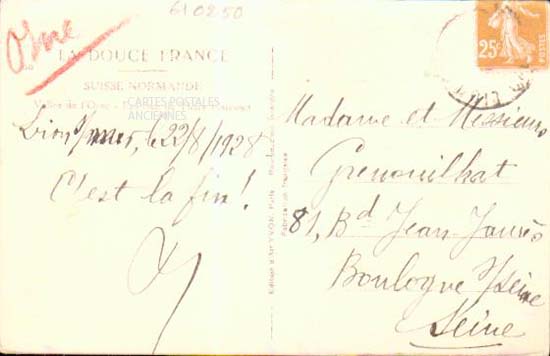 610250
Orne
LA DOUCE FRANCE
SUISSE NORMANDE
Vallée de l'Orne
CARTES POSTALES
ANCIENNES
Lion s/mer, le 22/8/1928
C'est la fin!
Fabrication française
25c
POSTES
Madame et Messieurs
Grenouilhat
81, Bd Jean Jaurès
Boulogne s/seine
Seine